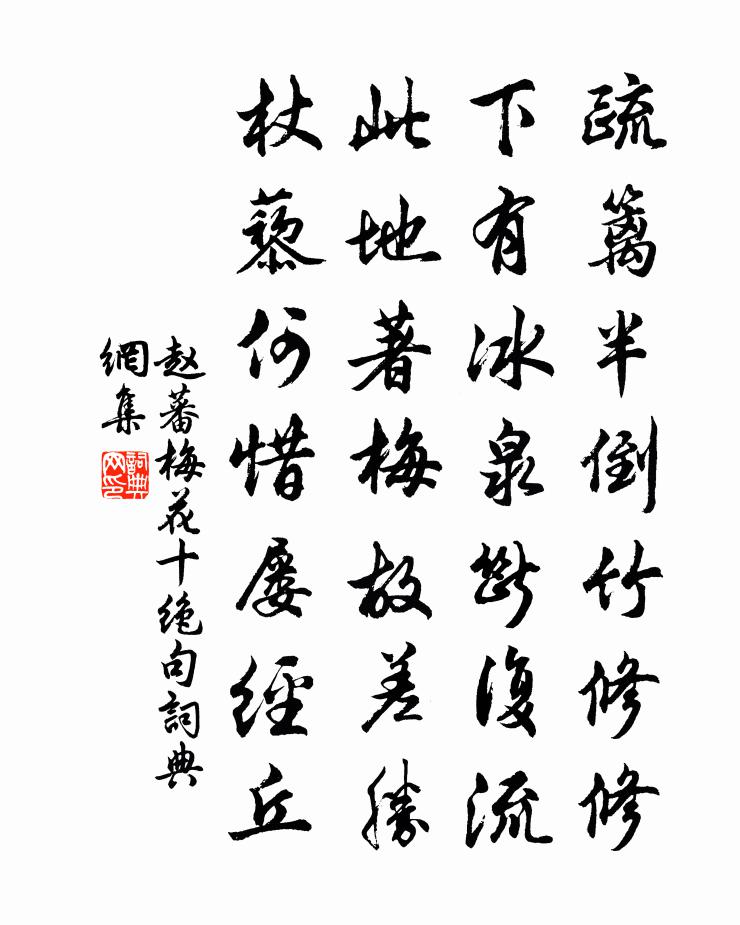 疏篱半倒竹修修
下有冰泉斷復流
此地著梅故差勝
杖藜何惜屡經丘
赵蕃梅花十绝句詞典
網集
詞典网印